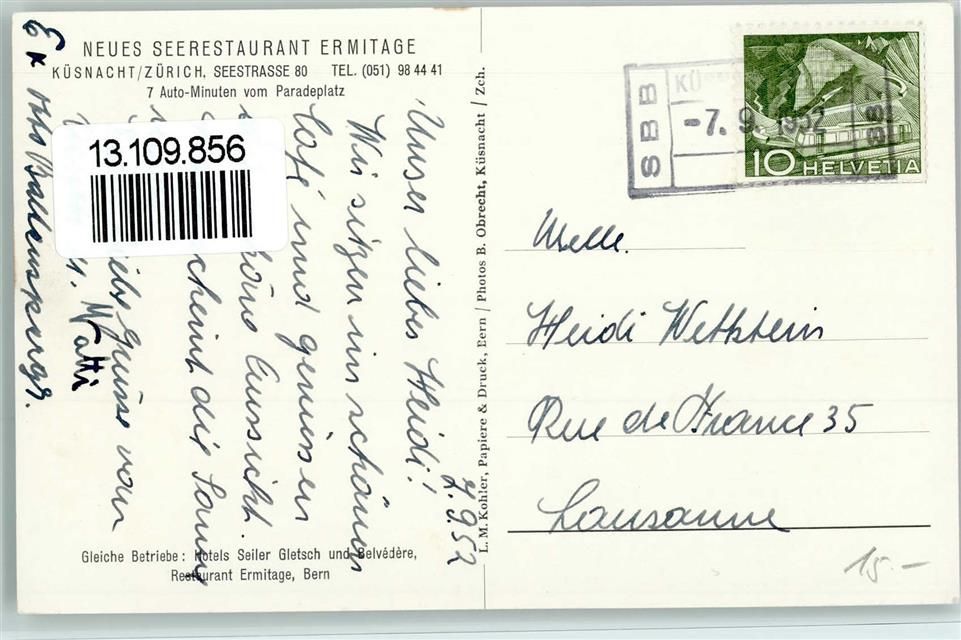 NEUES SEERESTAURANT ERMITAGE
KÜSNACHT/ZÜRICH, SEESTRASSE 80 TEL. (051) 98 44 41
7 Auto-Minuten vom Paradeplatz
13.109.856
7.9.52
Unser liebes Heidi!
Wir sitzen im schönen
Café und geniessen
Aussicht.
scheint die Sonne
Grüsse von
Gleiche Betriebe: Hotels Seiler Gletsch und Belvédère,
Restaurant Ermitage, Bern
L. M. Kohler, Papiere & Druck, Bern / Photos B. Obrecht, Küsnacht / Zch.
SBB
-7. 9. 1952
SBB
10 HELVETIA
Mselle.
Heidi Wettstein
Rue de France 35
Lausanne
15.-